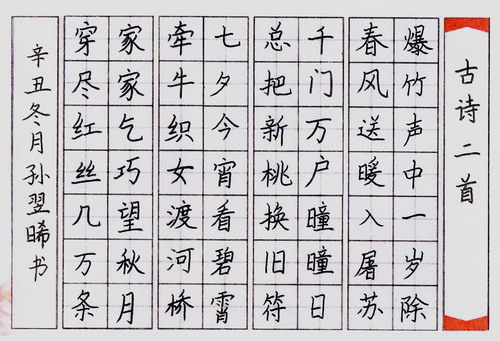 古诗二首
爆竹声中一岁除
春风送暖入屠苏
千门万户曈曈日
总把新桃换旧符
七夕今宵看碧霄
牵牛织女渡河桥
家家乞巧望秋月
穿尽红丝几万条
辛丑冬月孙翌晞书